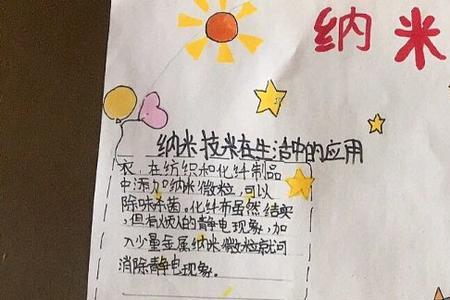 纳米
纳米技术在生活中的应用
衣，在纺织和化纤制品
中添加纳米微粒，可以
除味杀菌，化纤布虽然结实，
但有烦人的静电现象，加
入少量金属纳米微粒就可
消除静电现象。